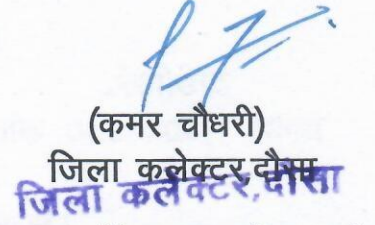 (कमर चौधरी)
जिला कलेक्टर, दौसा
जिला कलेक्टर, दौसा